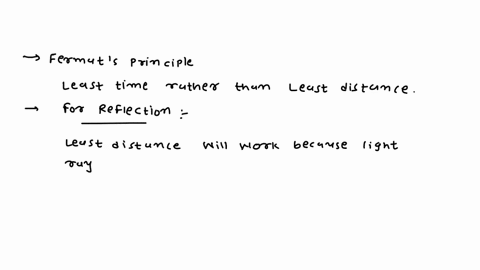 → Fermat's principle
Least time rather than Least distance.
→ for Reflection :-
Least distance will work because light
ray